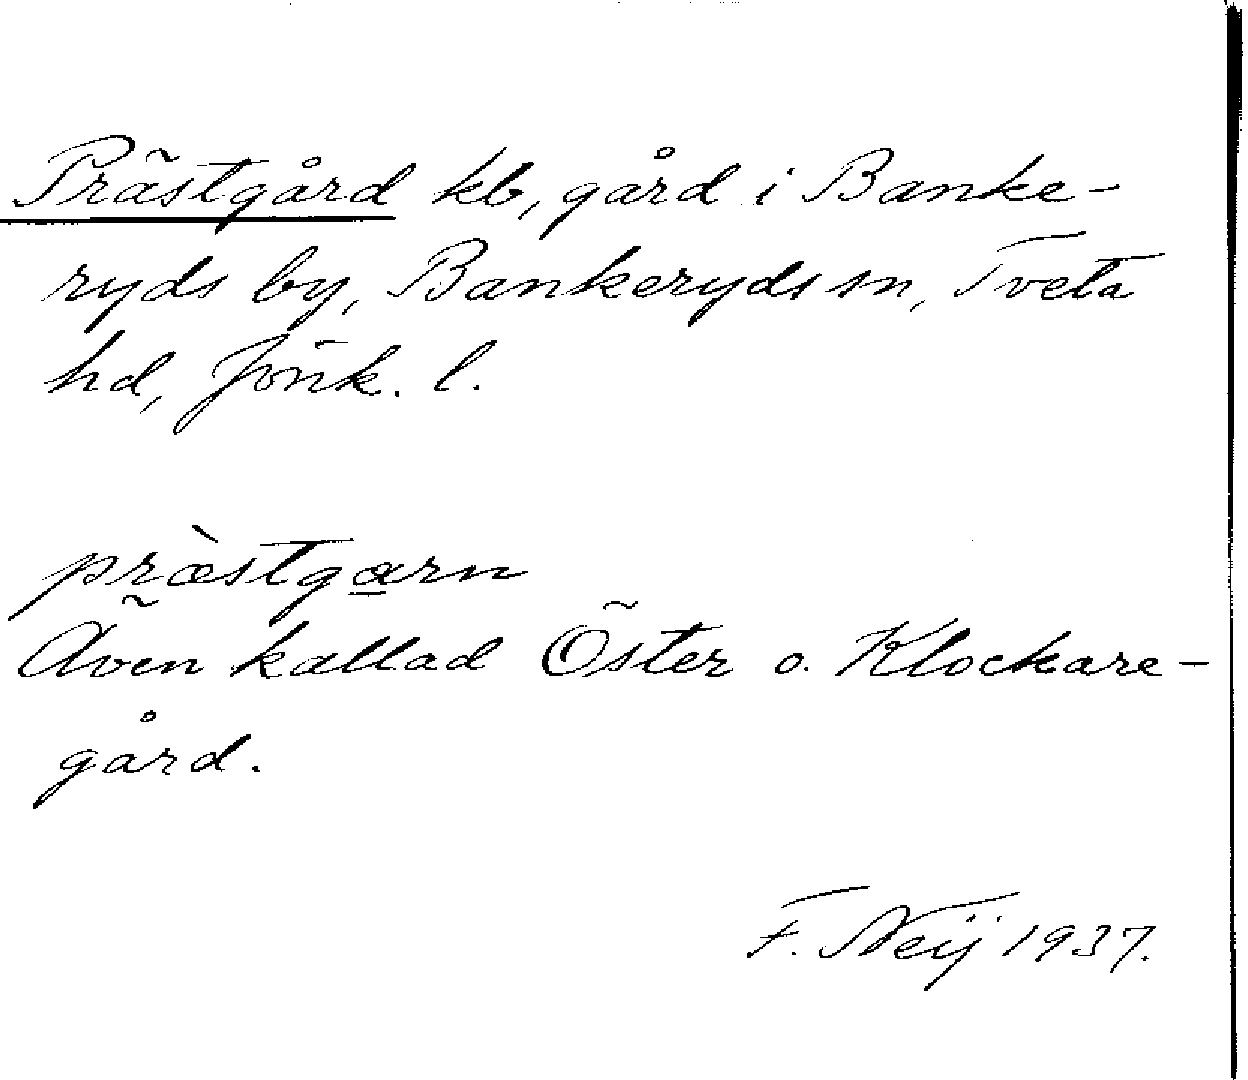 Prästgård kb, gård i Banke-
ryds by, Bankeryds sn, Tveta
hd, Jönk. l.
præ̀stgarn
Även kallad Öster o. Klockare-
gård.
F. Neij 1937.